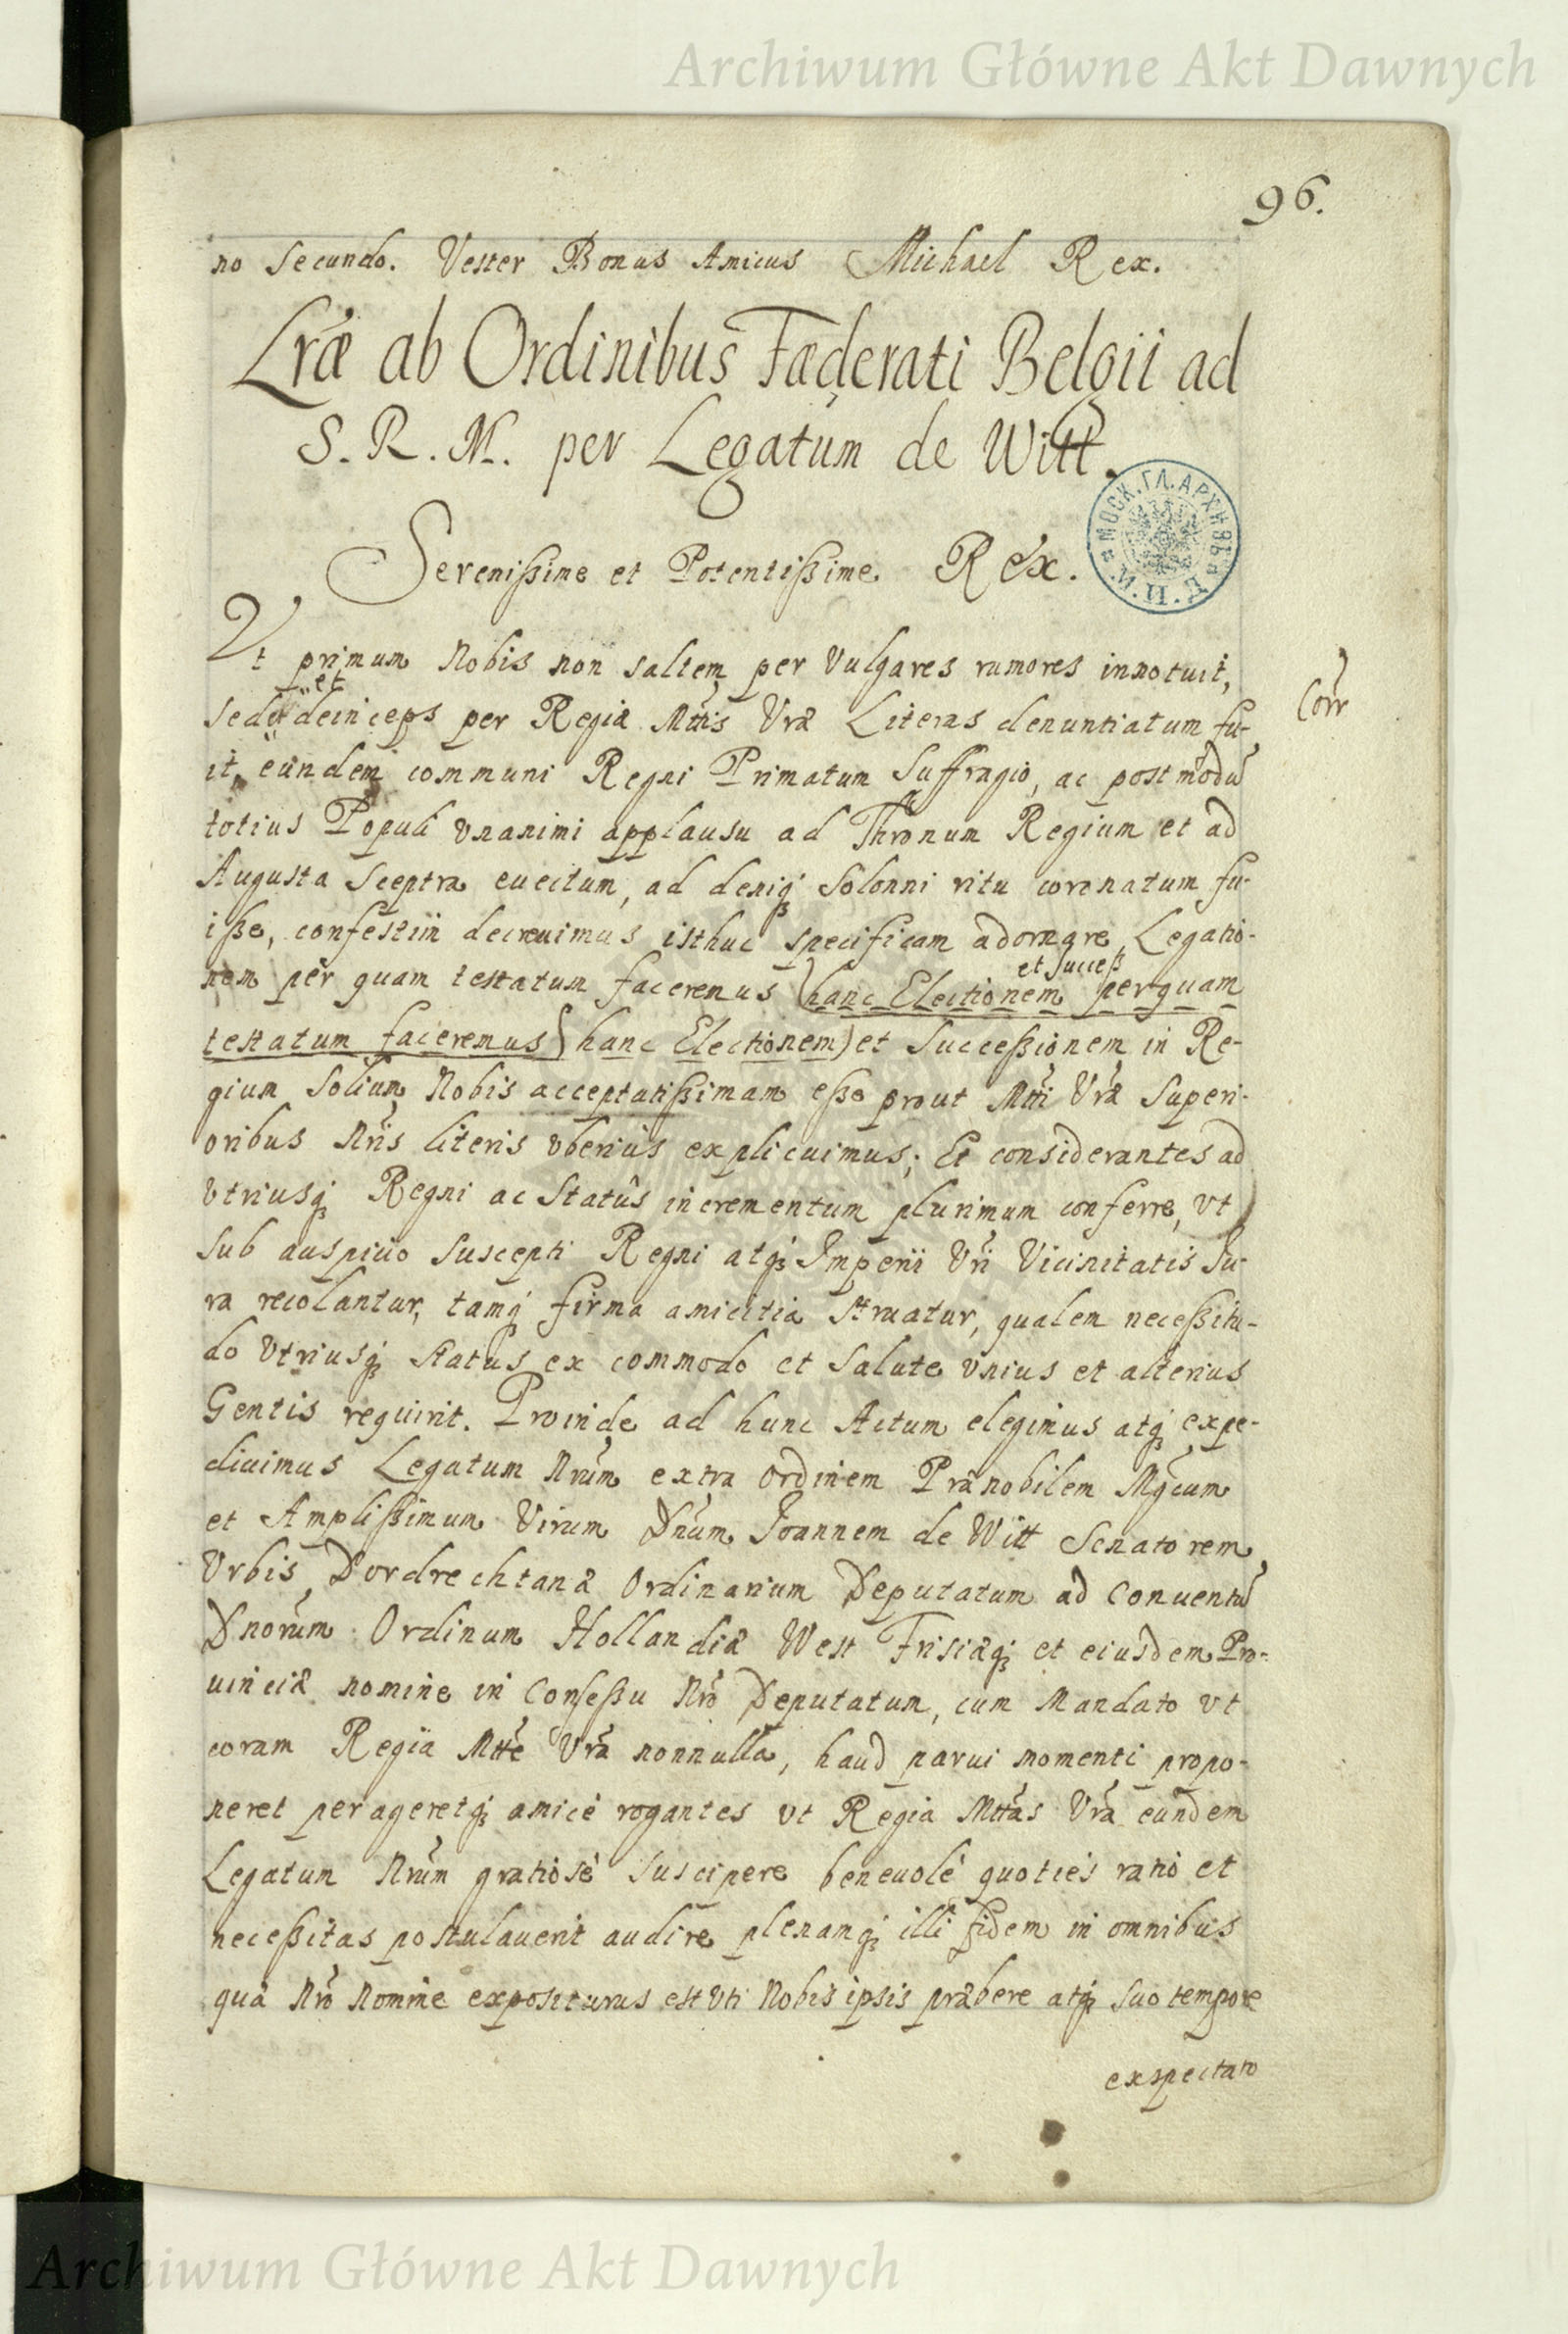 Archiwum Główne Akt Dawnych
96.
no Secundo. Vester Bonus Amicus Michael Rex.
Lræ ab Ordinibus Fæderati Belgii ad
S. R. M. per Legatum de Witt.
МОСК. ГЛ. АРХИВЪ М.И.Д.
Serenißime et Potentißime Rex.
Vt primum Nobis non saltem per Vulgares rumores innotuit,
et
Sed deinceps per Regiæ Mttis Vræ Literas denuntiatum fu-
Corr
it, eundem communi Regni Primatum Suffragio, ac postmodũ
totius Populi vnanimi applausu ad Thronum Regium et ad
Augusta Sceptra euectum, ad deniq; Solonni ritu coronatum fu-
iße, confestim decreuimus isthuc specificam adornare Legatio-
et Succeß
nem per quam testatum faceremus (hanc Electionem perquam
testatum faceremus) hanc Electionem) et Succeßionem in Re-
gium Solium Nobis acceptatißimam eße prout Mtti Vræ Superi-
oribus Nris literis vberius explicuimus; Et considerantes ad
vtriusq; Regni ac Statûs incrementum plurimum conferre, vt
Sub auspicio Suscepti Regni atq; Imperii Vri Vicinitatis Iu-
ra recolantur, tamq; firma amicitia struatur, qualem neceßitu-
do Vtriusq; status ex commodo et Salute vnius et alterius
Gentis requirit. Proinde ad hunc Actum elegimus atq; expe-
diuimus Legatum Nrum extra Ordinem Prænobilem Mgcum
et Amplißimum Virum Dnum Joannem de Witt Senatorem
Vrbis Dordrechtanæ Ordinarium Deputatum ad Conuentũ
Dnorum Ordinum Hollandiæ West Frisiæq; et eiusdem Pro-
uinciæ nomine in Conseßu Nro Deputatum, cum Mandato vt
coram Regia Mtte Vra nonnulla, haud parui momenti propo-
neret perageretq; amicè rogantes vt Regia Mttas Vra eundem
Legatum Nrum gratiosè suscipere beneuolè quoties ratio et
neceßitas postulauerit audire plenamq; illi fidem in omnibus
quæ Nro Nomine expositurus est vti Nobis ipsis præbere atq; suo tempore
exspectato
Archiwum Główne Akt Dawnych